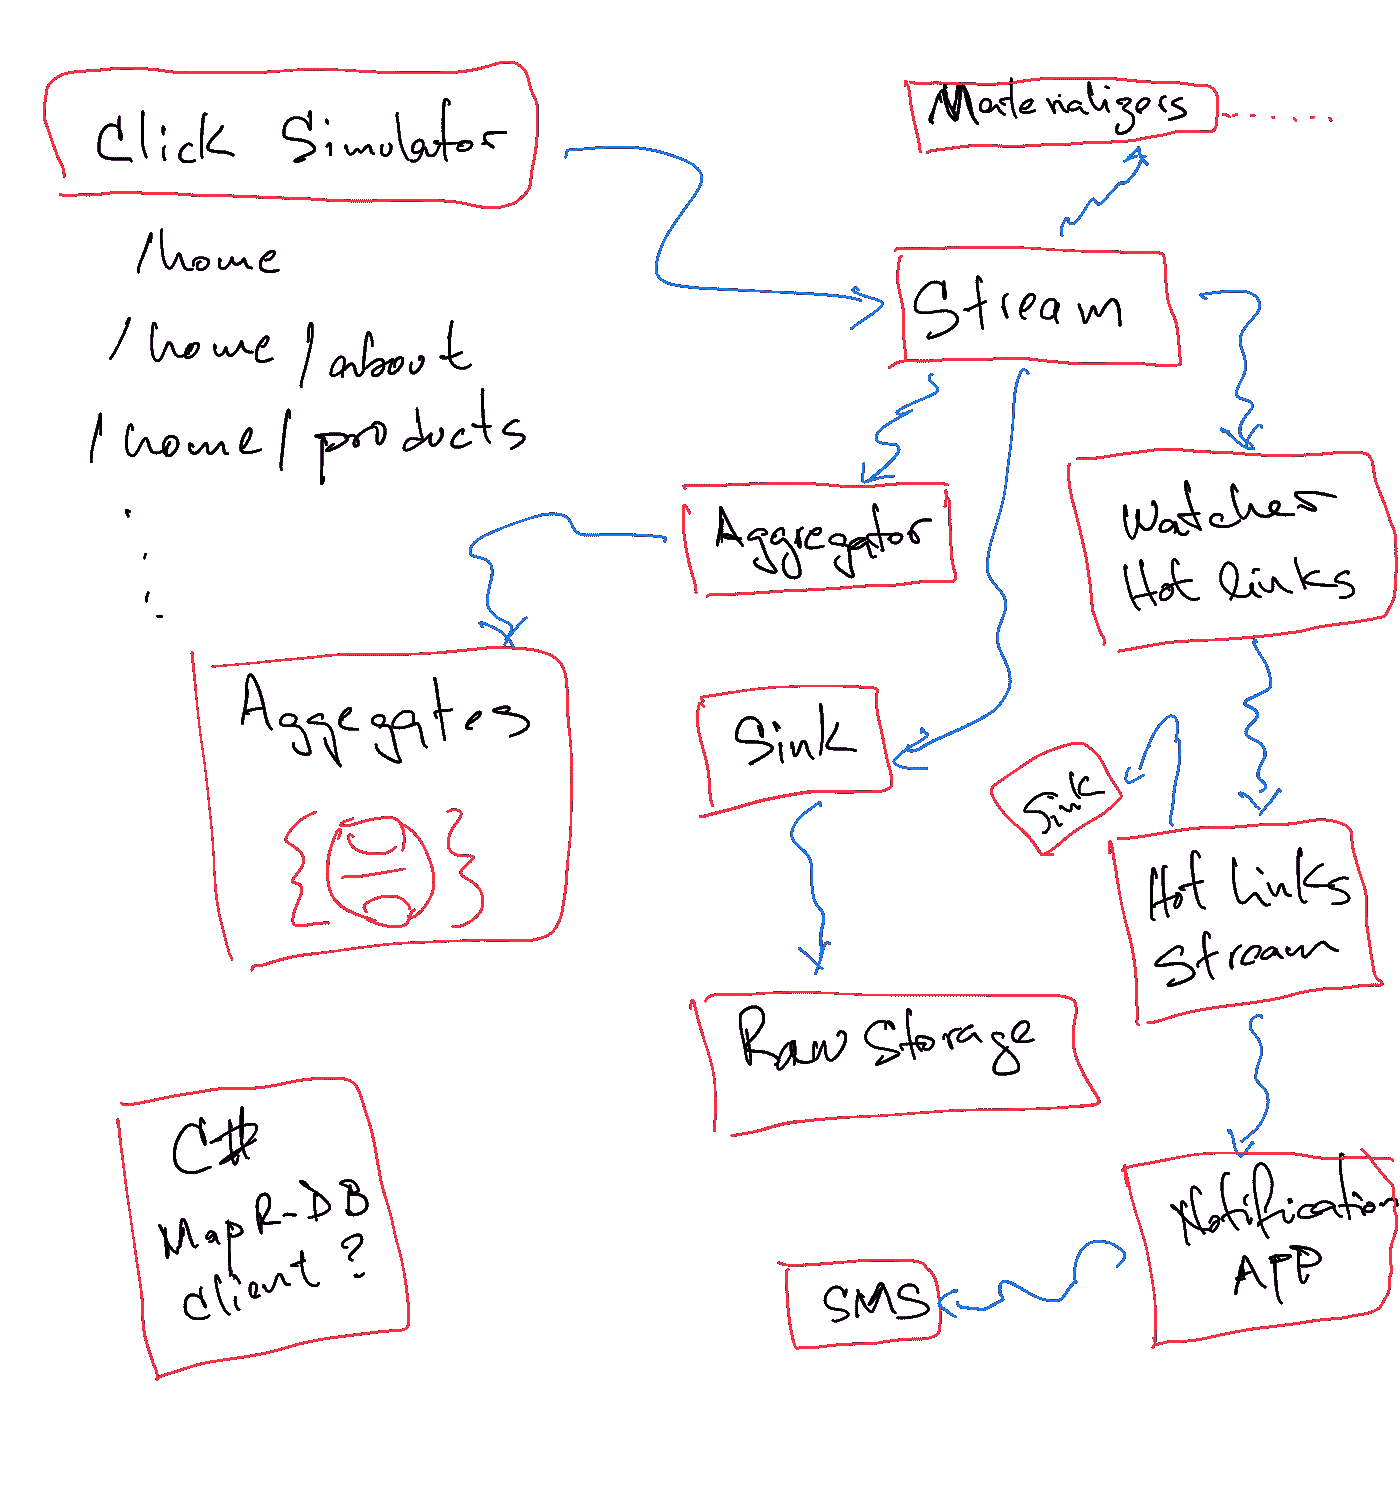 Click Simulator
/home
/home/about
/home/products
Materializers
Stream
Aggregator
Watcher
Hot links
Aggegates
Sink
Sink
Hot Links
Stream
Raw Storage
C#
MapR-DB
Client?
Notification
APP
SMS